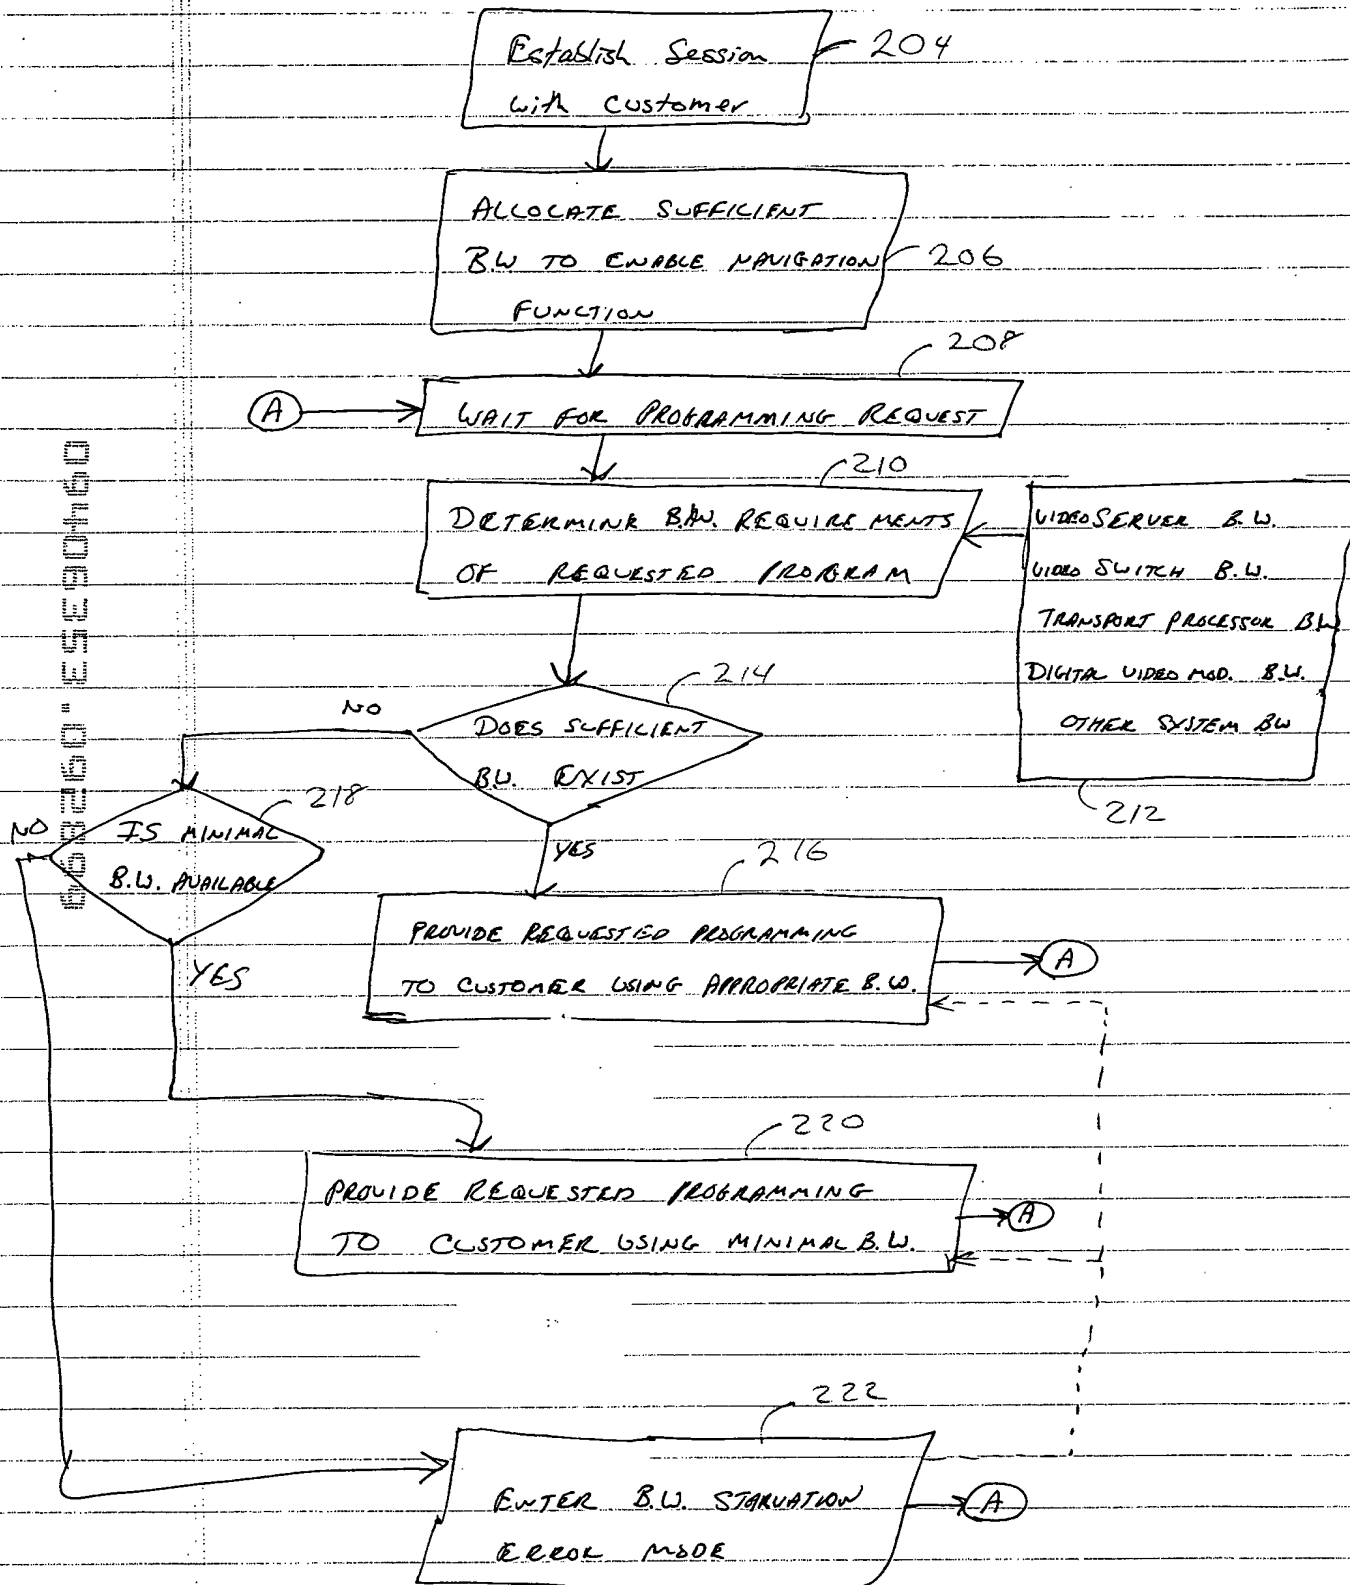 Establish Session
with customer
204
ALLOCATE SUFFICIENT
B.W TO ENABLE NAVIGATION
FUNCTION
206
208
A
WAIT FOR PROGRAMMING REQUEST
210
DETERMINE B.W. REQUIREMENTS
OF REQUESTED PROGRAM
VIDEO SERVER B.W.
VIDEO SWITCH B.W.
TRANSPORT PROCESSOR BW
DIGITAL VIDEO MOD. B.W.
OTHER SYSTEM BW
212
214
NO
DOES SUFFICIENT
BW. EXIST
YES
218
NO
IS MINIMAL
B.W. AVAILABLE
YES
216
PROVIDE REQUESTED PROGRAMMING
TO CUSTOMER USING APPROPRIATE B.W.
A
220
PROVIDE REQUESTED PROGRAMMING
TO CUSTOMER USING MINIMAL B.W.
A
222
ENTER B.W. STARVATION
ERROR MODE
A